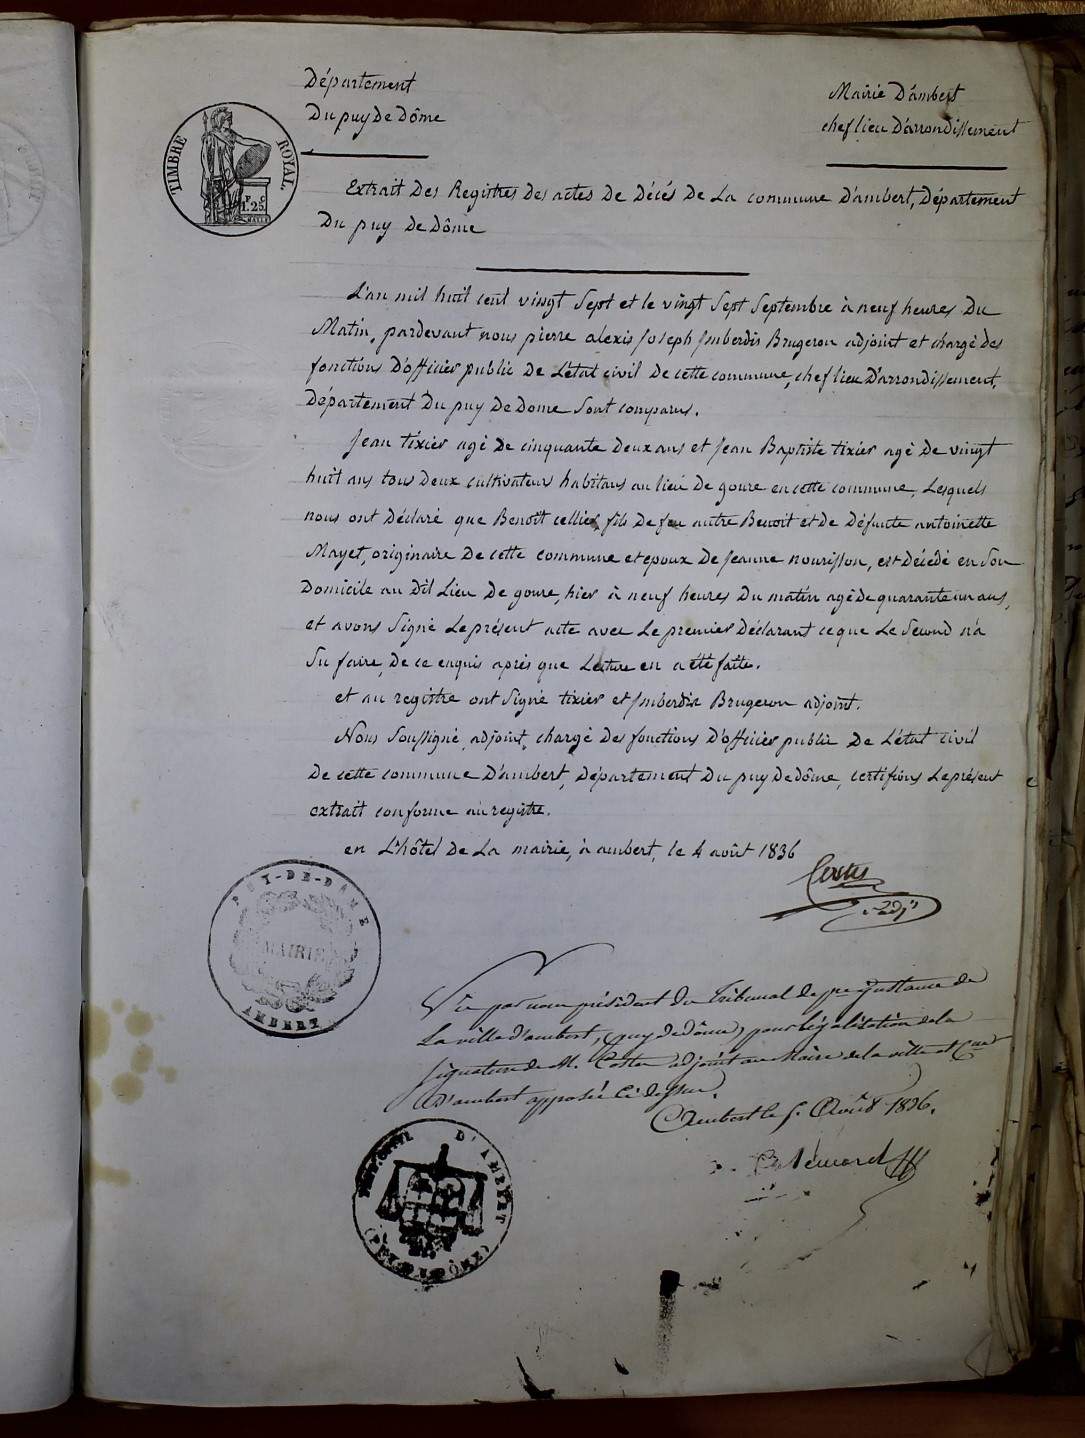 Département
Du puy de Dôme
Mairie D'ambert
chef lieu D'arrondissement
TIMBRE ROYAL
1. 25
Extrait Des Registres Des actes De Décés De La commune D'ambert, Département
Du puy de Dôme
L'an mil huit cent vingt Sept et le vingt Sept Septembre à neuf heures Du
Matin, pardevant nous pierre alexis Joseph Imberdis Brugeron adjoint et chargé des
fonctions D'officier public De L'état civil De cette commune, chef lieu D'arrondissement,
Département Du puy De Dome Sont comparus.
Jean tixier agé De cinquante Deux ans et Jean Baptiste tixier agé De vingt
huit ans tous Deux cultivateurs habitans au lieu De goure en cette commune, Lesquels
nous ont Déclaré que Benoît cellier, fils De feu autre Benoit et De Défunte antoinette
Mayet, originaire De cette commune et epoux De Jeanne nourisson, est Décédé en Son
Domicile au Dit Lieu De goure, hier à neuf heures Du matin agé De quarante un ans,
et avons Signé Le présent acte avec Le premier Déclarant ce que Le Second n'a
Su faire, De ce enquis après que Lecture en a été faite.
et au registre ont Signé tixier et Imberdis Brugeron adjoint.
Nous Soussigné, adjoint, chargé Des fonctions D'officier public De L'état civil
De cette commune D'ambert, Département Du puy De Dôme, certifions Le présent
extrait conforme au registre.
en L'hôtel De La mairie, à ambert, le 4 août 1836
Costes
adjt
PUY-DE-DAME
MAIRIE
AMBERT
Vu par nous président du tribunal de pre Instance de
La ville d'ambert, (puy de dôme) pour légalisation de la
signature de M. Costes adjoint au Maire de la ville et Cne
d'ambert apposée ci dessus.
Ambert le 5 Août 1836.
D'AMBERT
(PUY-DE-DÔME)